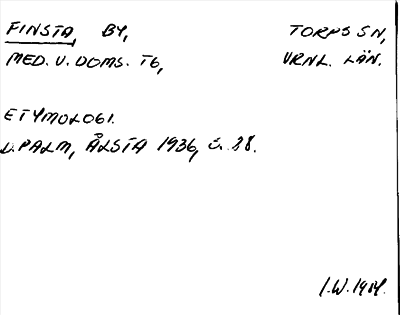 FINSTA, BY, TORPS SN,
MED. V. DOMS. TG, VRNL. LÄN.
ETYMOLOGI.
D. PALM, ÅLSTA 1936, s. 88.
I.W. 1914.